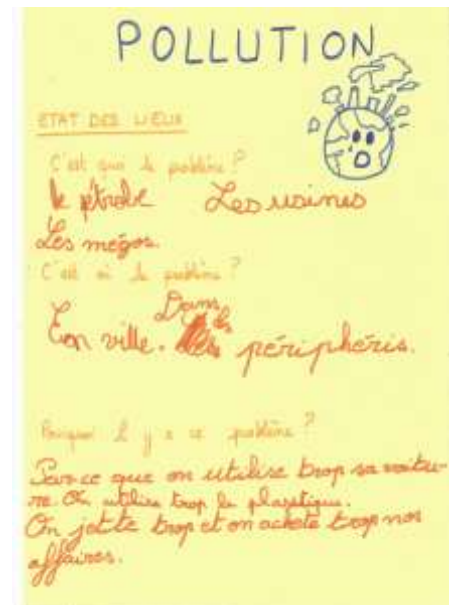 POLLUTION
ETAT DES LIEUX
C'est quoi le problème ?
le pétrole Les usines
Les mégos.
C'est où le problème ?
En ville. Dans les périphéris.
Pourquoi il y a ce problème ?
Parce que on utilise trop sa voitu-
re On utilise trop le plastique.
On jette trop et on achète trop nos
affaires.